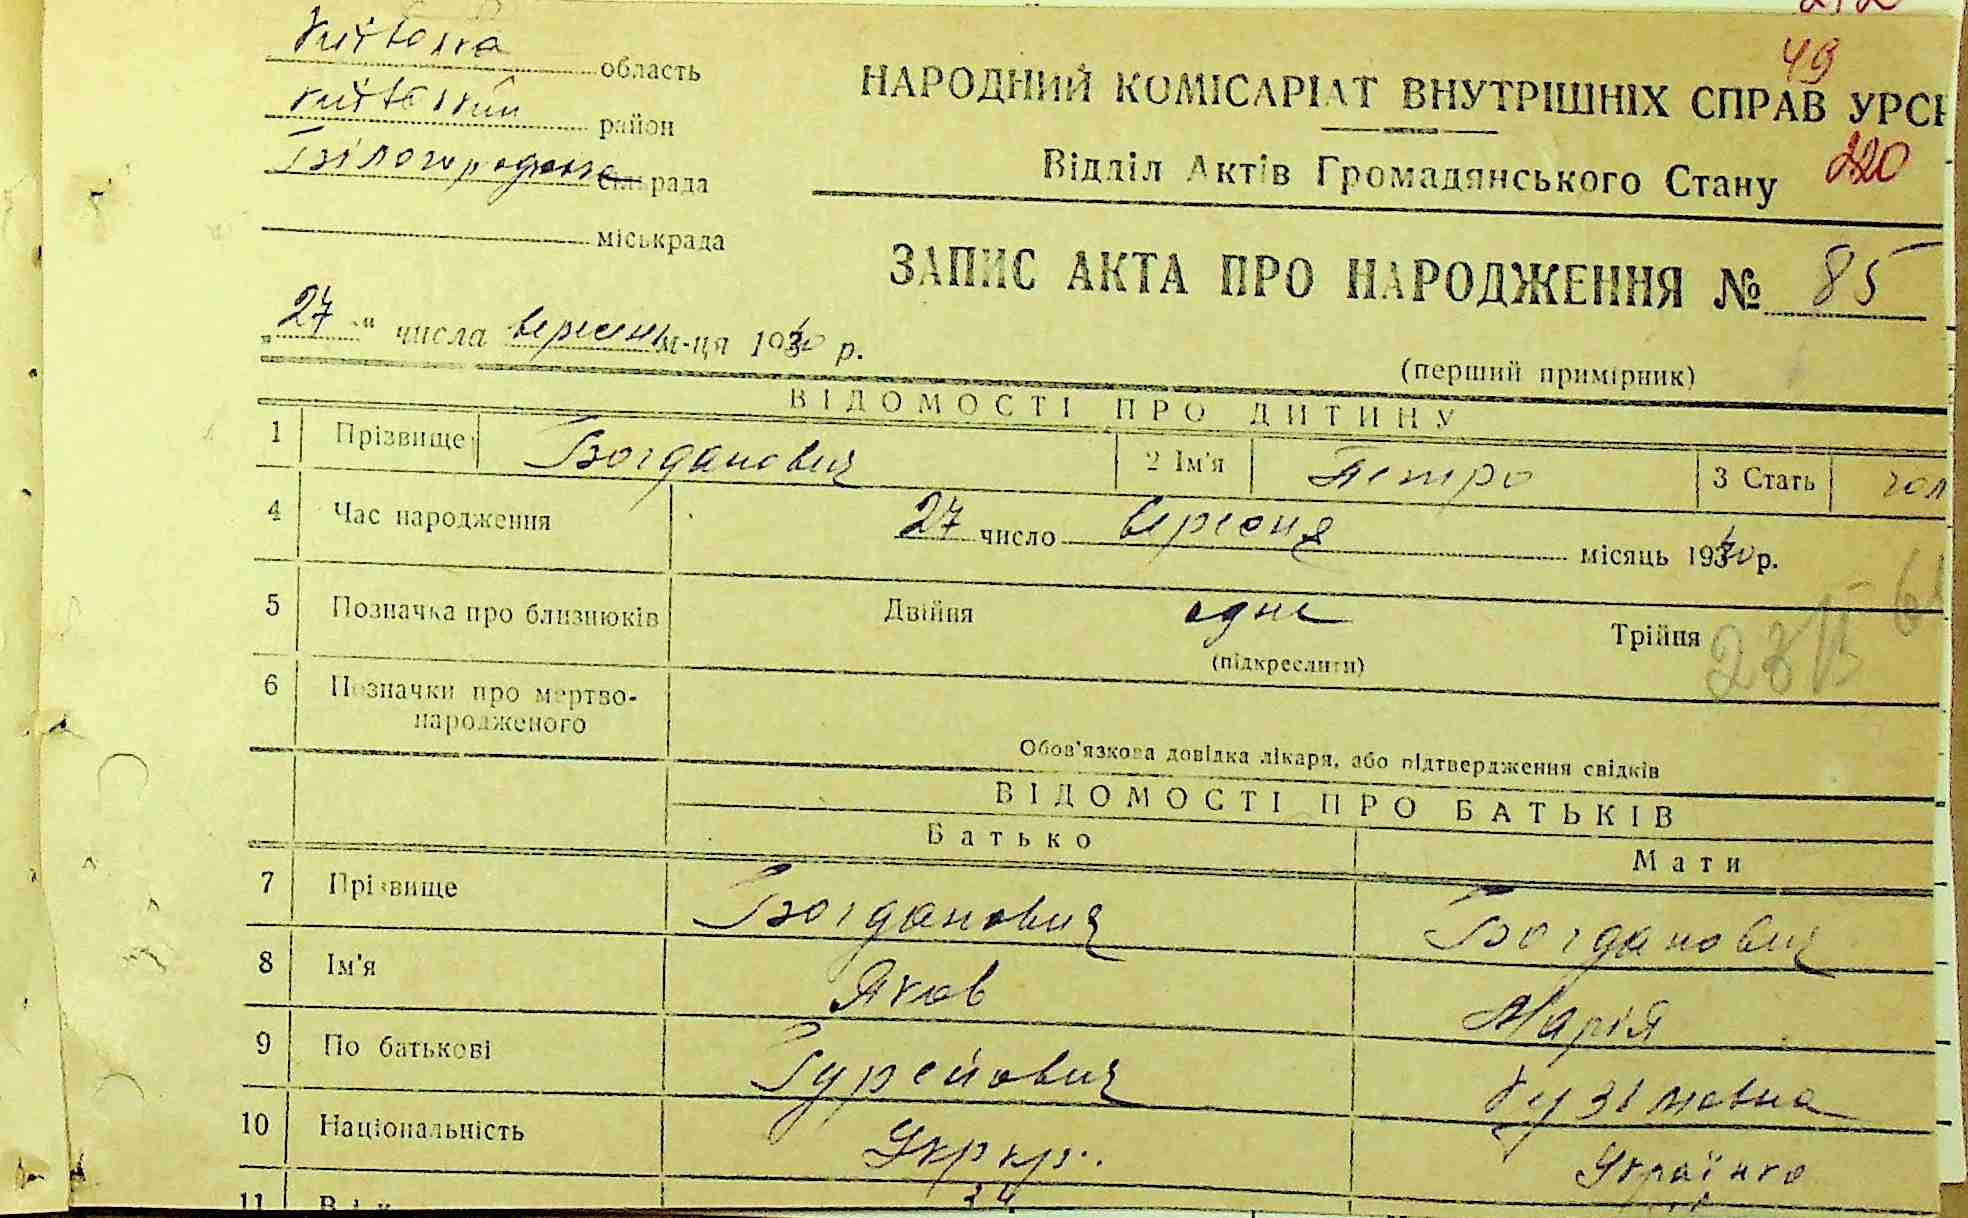 Київська область
Київський район
Білогородська сільрада
міськрада
НАРОДНИЙ КОМІСАРІАТ ВНУТРІШНІХ СПРАВ УРСР
49
Відділ Актів Громадянського Стану 220
ЗАПИС АКТА ПРО НАРОДЖЕННЯ № 85
„27“ числа вересня м-ця 1940 р.
(перший примірник)
ВІДОМОСТІ ПРО ДИТИНУ
1 Прізвище Богданович 2 Ім'я Петро 3 Стать чол
4 Час народження 27 число вересня місяць 1940 р.
5 Позначка про близнюків Двійня одне Трійня
(підкреслити)
6 Позначки про мертво-
народженого
Обов'язкова довідка лікаря, або підтвердження свідків
ВІДОМОСТІ ПРО БАТЬКІВ
Батько Мати
7 Прізвище Богданович Богданович
8 Ім'я Яков Марія
9 По батькові Гурейович Кузьмовна
10 Національність Укр Українка
11 Вік 34